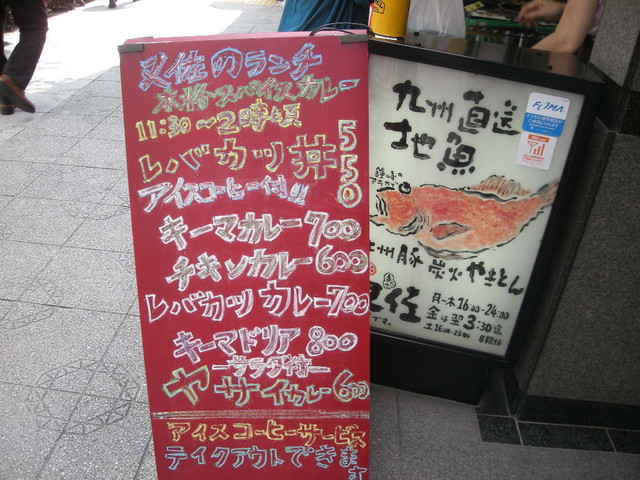 又佐のランチ
本格スパイスカレー
11:30〜2時頃
レバカツ丼 550
アイスコーヒー付!!
キーマカレー 700
チキンカレー 600
レバカツカレー 700
キーマドリア 800
ーサラダ付ー
ヤサイカレー 600
アイスコーヒーサービス
テイクアウトできます
九州直送
地魚
FOMA
九州豚炭火やきとん
又佐
月-木16:00-24:00
金は翌3:30迄
土16:00-23:00
日祝休